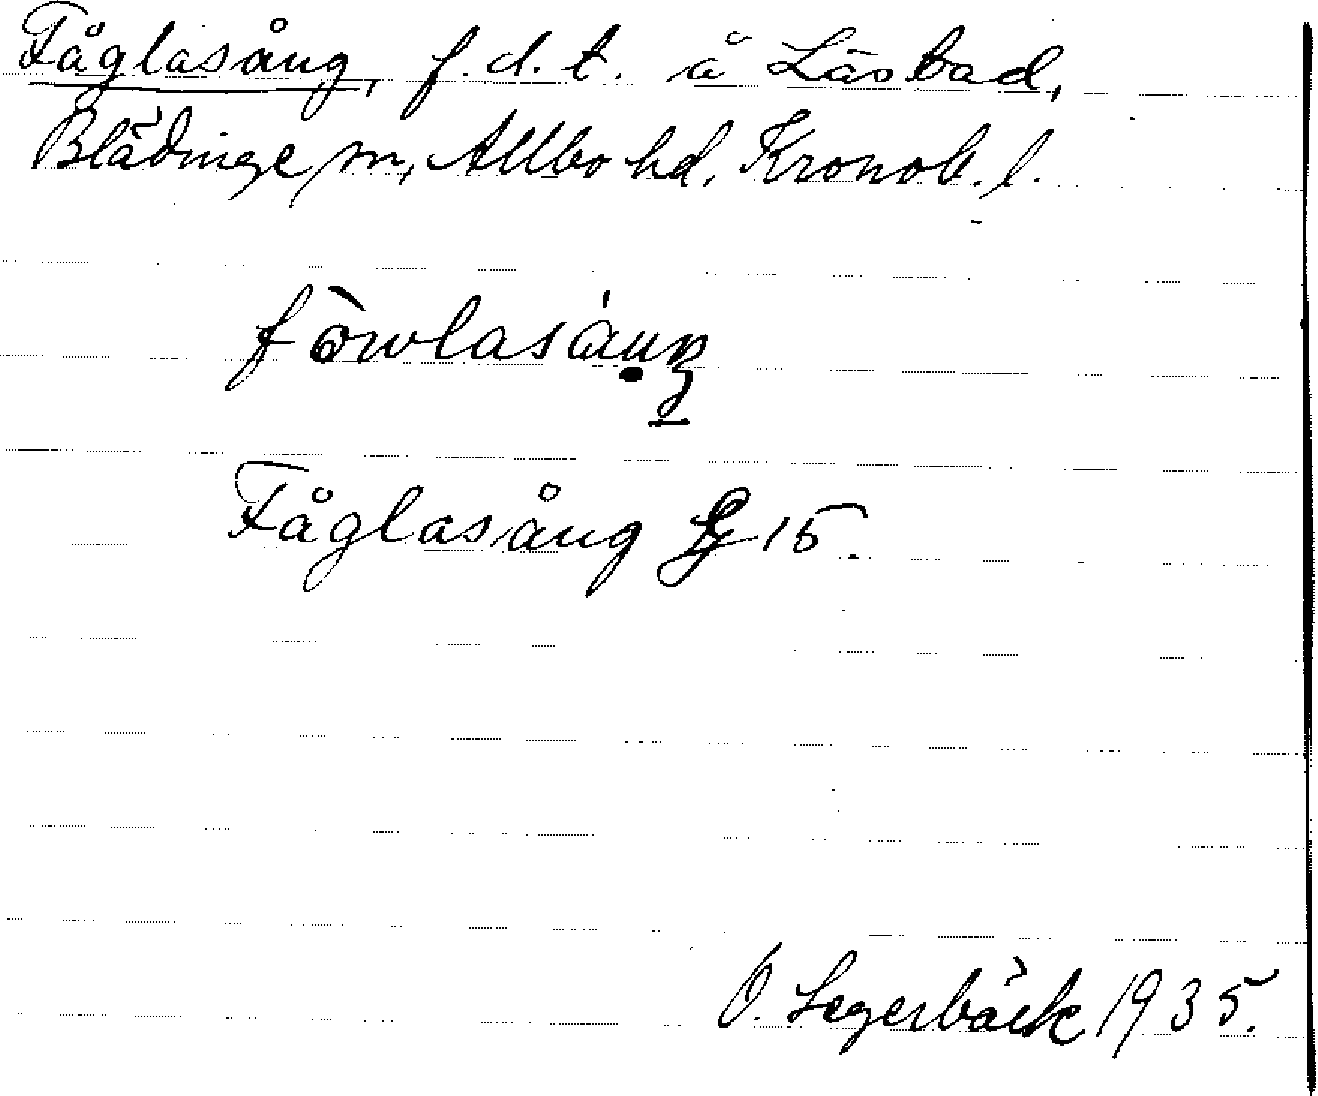 Fåglasång, f.d.t. å Läsbad,
Blädinge sn, Allbo hd, Kronob. l.
Fåglasång 15.
O. Segerbäck 1935.